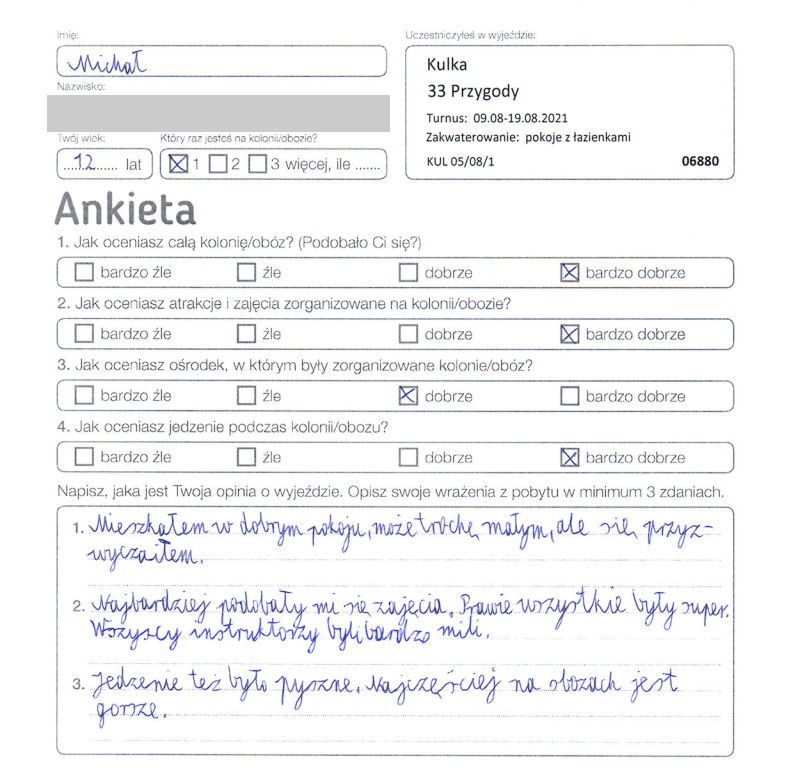 Imię:
Michał
Nazwisko:
Twój wiek:
12 lat
Który raz jesteś na kolonii/obozie?
1 2 3 więcej, ile .......
Uczestniczyłeś w wyjeździe:
Kulka
33 Przygody
Turnus: 09.08-19.08.2021
Zakwaterowanie: pokoje z łazienkami
KUL 05/08/1 06880
Ankieta
1. Jak oceniasz całą kolonię/obóz? (Podobało Ci się?)
bardzo źle źle dobrze bardzo dobrze
2. Jak oceniasz atrakcje i zajęcia zorganizowane na kolonii/obozie?
bardzo źle źle dobrze bardzo dobrze
3. Jak oceniasz ośrodek, w którym były zorganizowane kolonie/obóz?
bardzo źle źle dobrze bardzo dobrze
4. Jak oceniasz jedzenie podczas kolonii/obozu?
bardzo źle źle dobrze bardzo dobrze
Napisz, jaka jest Twoja opinia o wyjeździe. Opisz swoje wrażenia z pobytu w minimum 3 zdaniach.
1. Mieszkałem w dobrym pokoju, może trochę małym, ale się przyz=
wyczaiłem.
2. Najbardziej podobały mi się zajęcia. Prawie wszystkie były super.
Wszyscy instruktorzy byli bardzo mili.
3. Jedzenie też było pyszne. Najczęściej na obozach jest
gorsze.